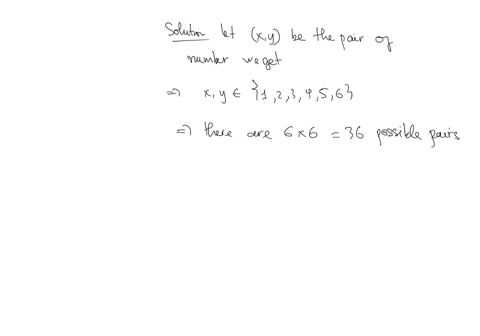 Solution let (x,y) be the pair of
number we get
⇒ x, y ∈ {1,2,3,4,5,6}
⇒ there are 6×6 = 36 possible pairs